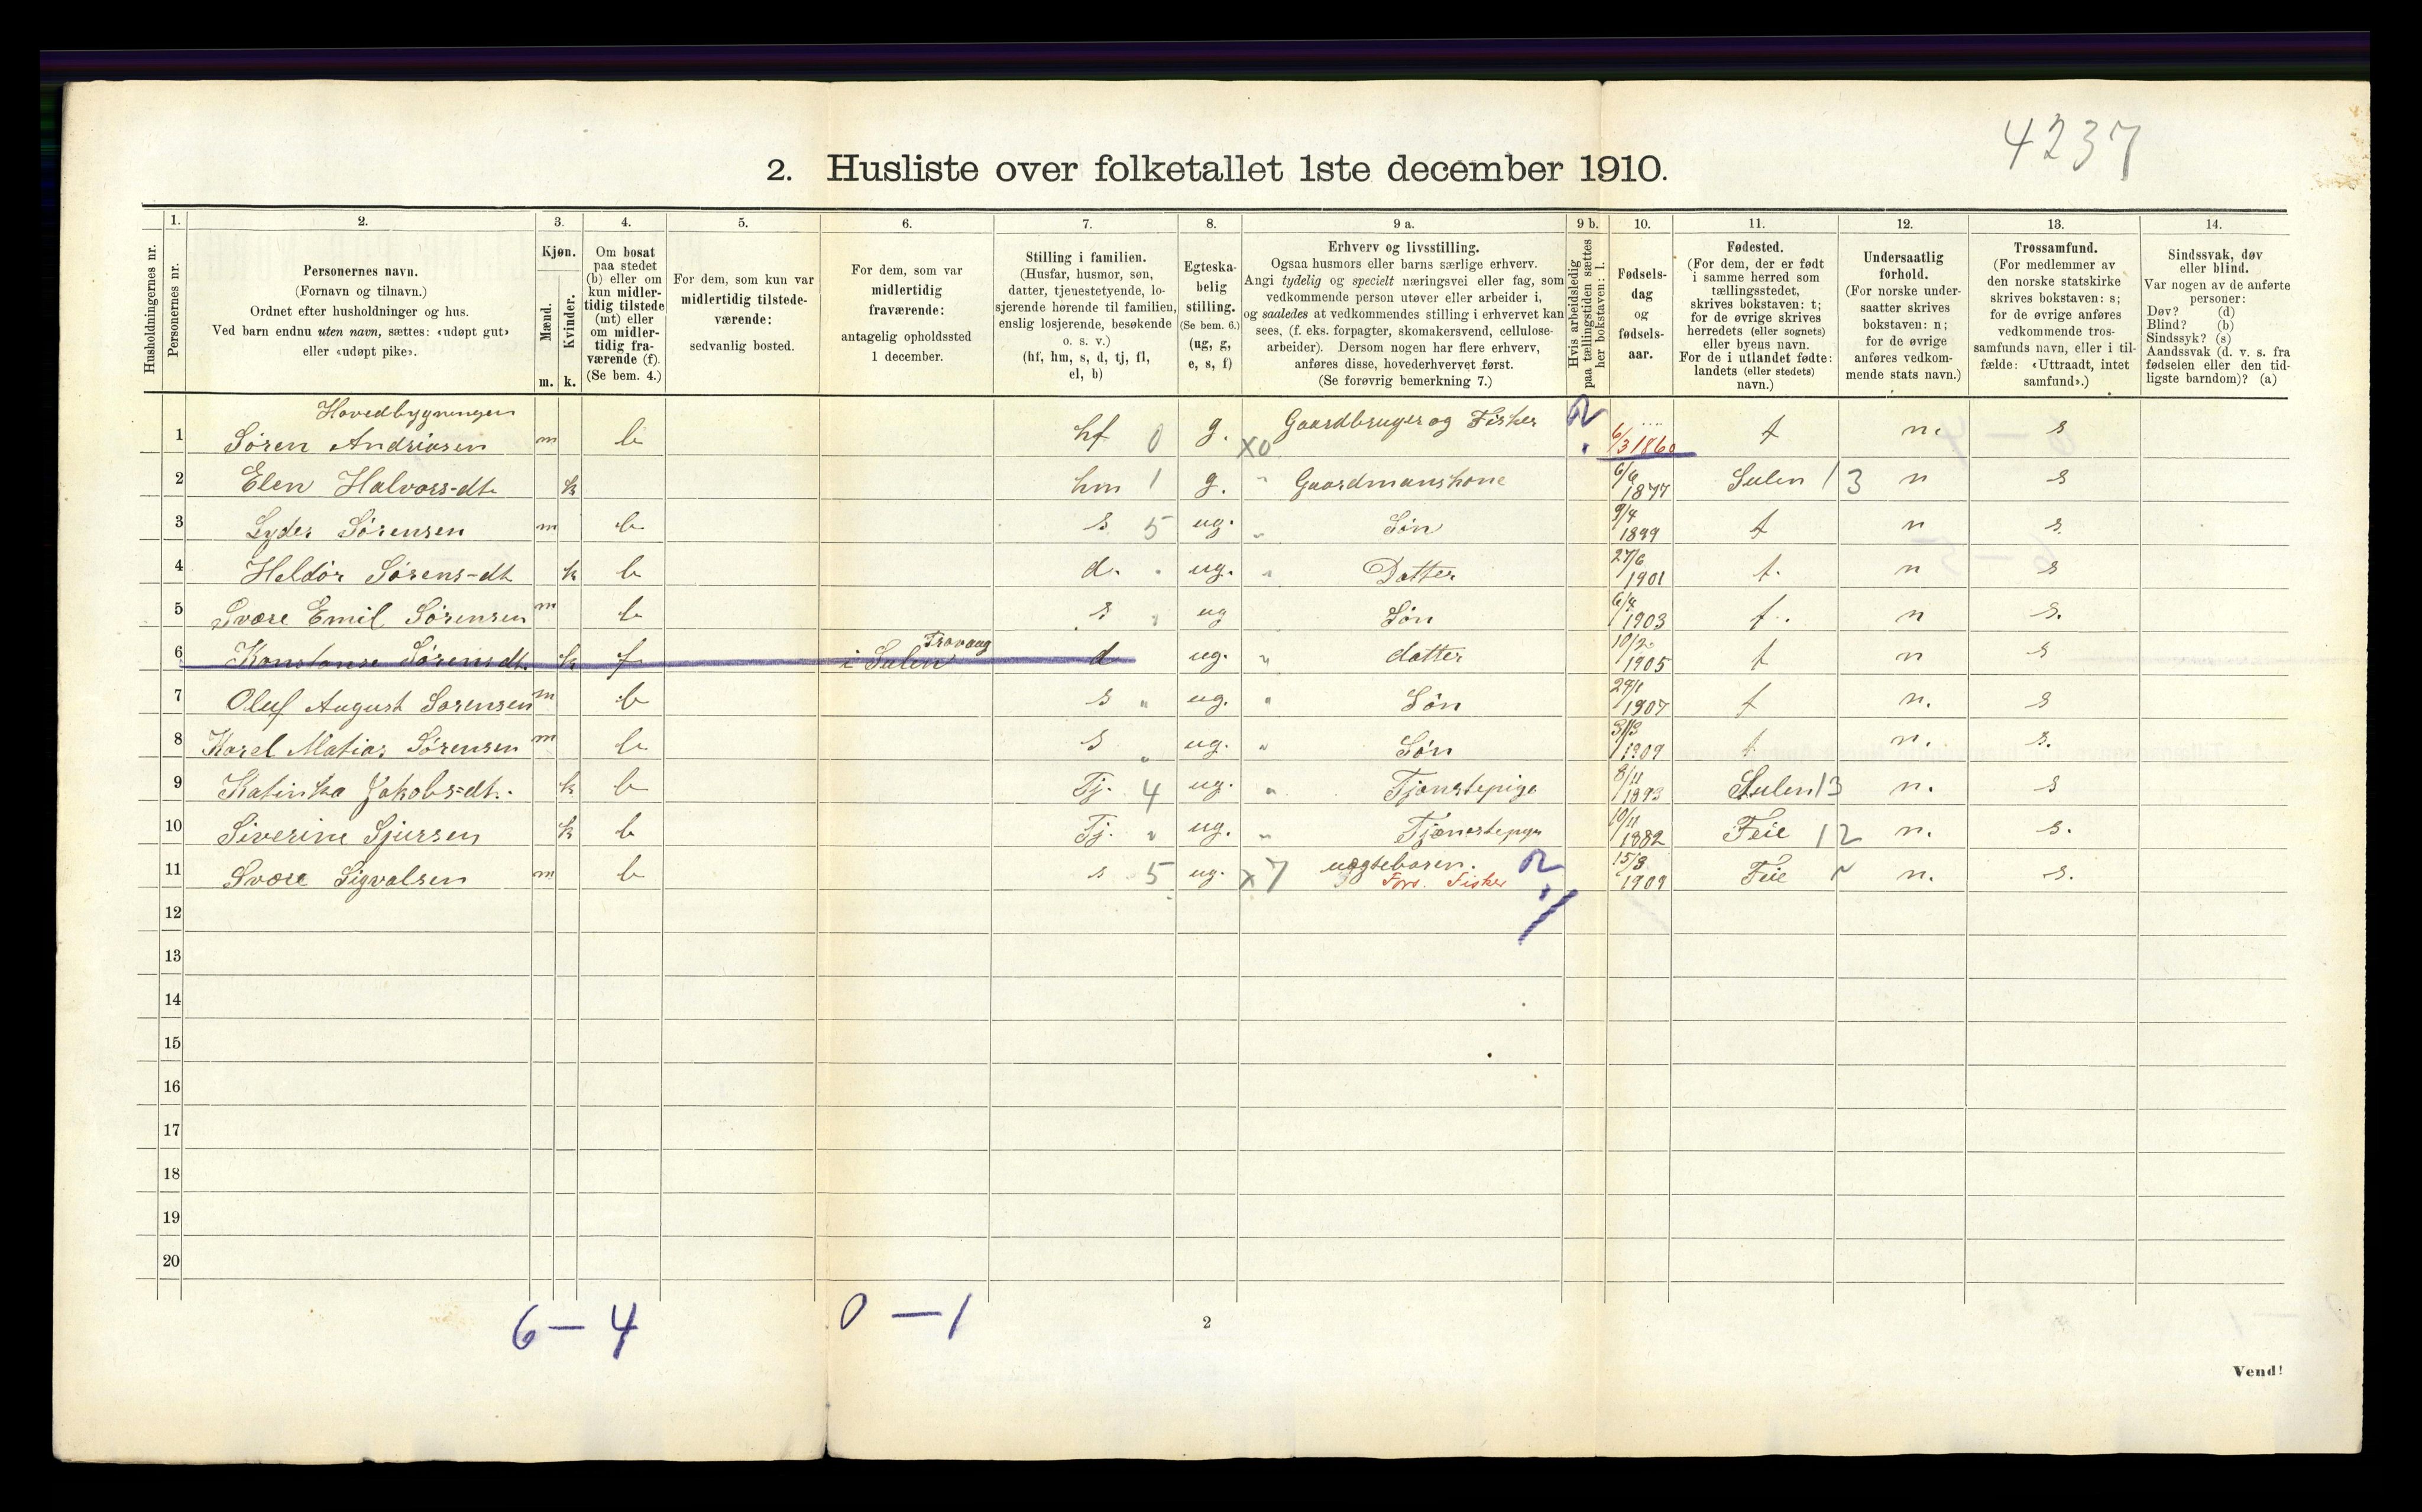 4237
2. Husliste over folketallet 1ste december 1910.
1. 2. 3. 4. 5. 6. 7. 8. 9 a. 9 b. 10. 11. 12. 13. 14.
Husholdningernes nr.
Personernes nr.
Personernes navn.
(Fornavn og tilnavn.)
Ordnet efter husholdninger og hus.
Ved barn endnu uten navn, sættes: «udøpt gut»
eller «udøpt pike».
Kjøn.
Mænd.
Kvinder.
m. k.
Om bosat
paa stedet
(b) eller om
kun midler-
tidig tilstede
(mt) eller
om midler-
tidig fra-
værende (f).
(Se bem. 4.)
For dem, som kun var
midlertidig tilstede-
værende:
sedvanlig bosted.
For dem, som var
midlertidig
fraværende:
antagelig opholdssted
1 december.
Stilling i familien.
(Husfar, husmor, søn,
datter, tjenestetyende, lo-
sjerende hørende til familien,
enslig losjerende, besøkende
o. s. v.)
(hf, hm, s, d, tj, fl,
el, b)
Egteska-
belig
stilling.
(Se bem. 6.)
(ug, g,
e, s, f)
Erhverv og livsstilling.
Ogsaa husmors eller barns særlige erhverv.
Angi tydelig og specielt næringsvei eller fag, som
vedkommende person utøver eller arbeider i,
og saaledes at vedkommendes stilling i erhvervet kan
sees, (f. eks. forpagter, skomakersvend, cellulose-
arbeider). Dersom nogen har flere erhverv,
anføres disse, hovederhvervet først.
(Se forøvrig bemerkning 7.)
Hvis arbeidsledig
paa tællingstiden sættes
her bokstaven: l.
Fødsels-
dag
og
fødsels-
aar.
Fødested.
(For dem, der er født
i samme herred som
tællingsstedet,
skrives bokstaven: t;
for de øvrige skrives
herredets (eller sognets)
eller byens navn.
For de i utlandet fødte:
landets (eller stedets)
navn.)
Undersaatlig
forhold.
(For norske under-
saatter skrives
bokstaven: n;
for de øvrige
anføres vedkom-
mende stats navn.)
Trossamfund.
(For medlemmer av
den norske statskirke
skrives bokstaven: s;
for de øvrige anføres
vedkommende tros-
samfunds navn, eller i til-
fælde: «Uttraadt, intet
samfund».)
Sindssvak, døv
eller blind.
Var nogen av de anførte
personer:
Døv? (d)
Blind? (b)
Sindssyk? (s)
Aandssvak (d. v. s. fra
fødselen eller den tid-
ligste barndom)? (a)
Hovedbygningen
1 Søren Andriasen m b hf 0 g. X0 Gaardbruger og Fisker 2 6/3 1860 t n. s
2 Elen Halvors-dt. k hm 1 g. " Gaardmanskone 6/6 1877 Sulen 13 n s
3 Lyder Sørensen m b s 5 ug. " Søn 9/4 1899 t n s.
4 Heldör Sørens-dt k b d. " ug. " Datter 27/6 1901 t. n s
5 Svære Emil Sørensen m b s " ug Søn 6/4 1903 t. n s.
6 Konstanse Sørensdt. k f i Sulen Travaag d ug. " datter 10/2 1905 t n s
7 Oluf August Sørensen m b s " ug. " Søn 24/1 1907 t n. s
8 Karel Matias Sørensen m b s " ug. " Søn 31/3 1909 t n. s.
9 Katinka Jakobs=dt. k b Tj. 4 ug. " Tjenstepige 8/11 1893 Sulen 13 n. s
10 Siverine Sjursen k b Tj. " ug. " Tjenstepige 10/11 1882 Feie 12 n. s.
11 Svære Sigvalsen m b s 5 ug. X7 uægtebaren. 2 15/8 1909 Feie " n. s.
Fors. Fisker
12
13
14
15
16
17
18
19
20
6 — 4 0 — 1
2
Vend!